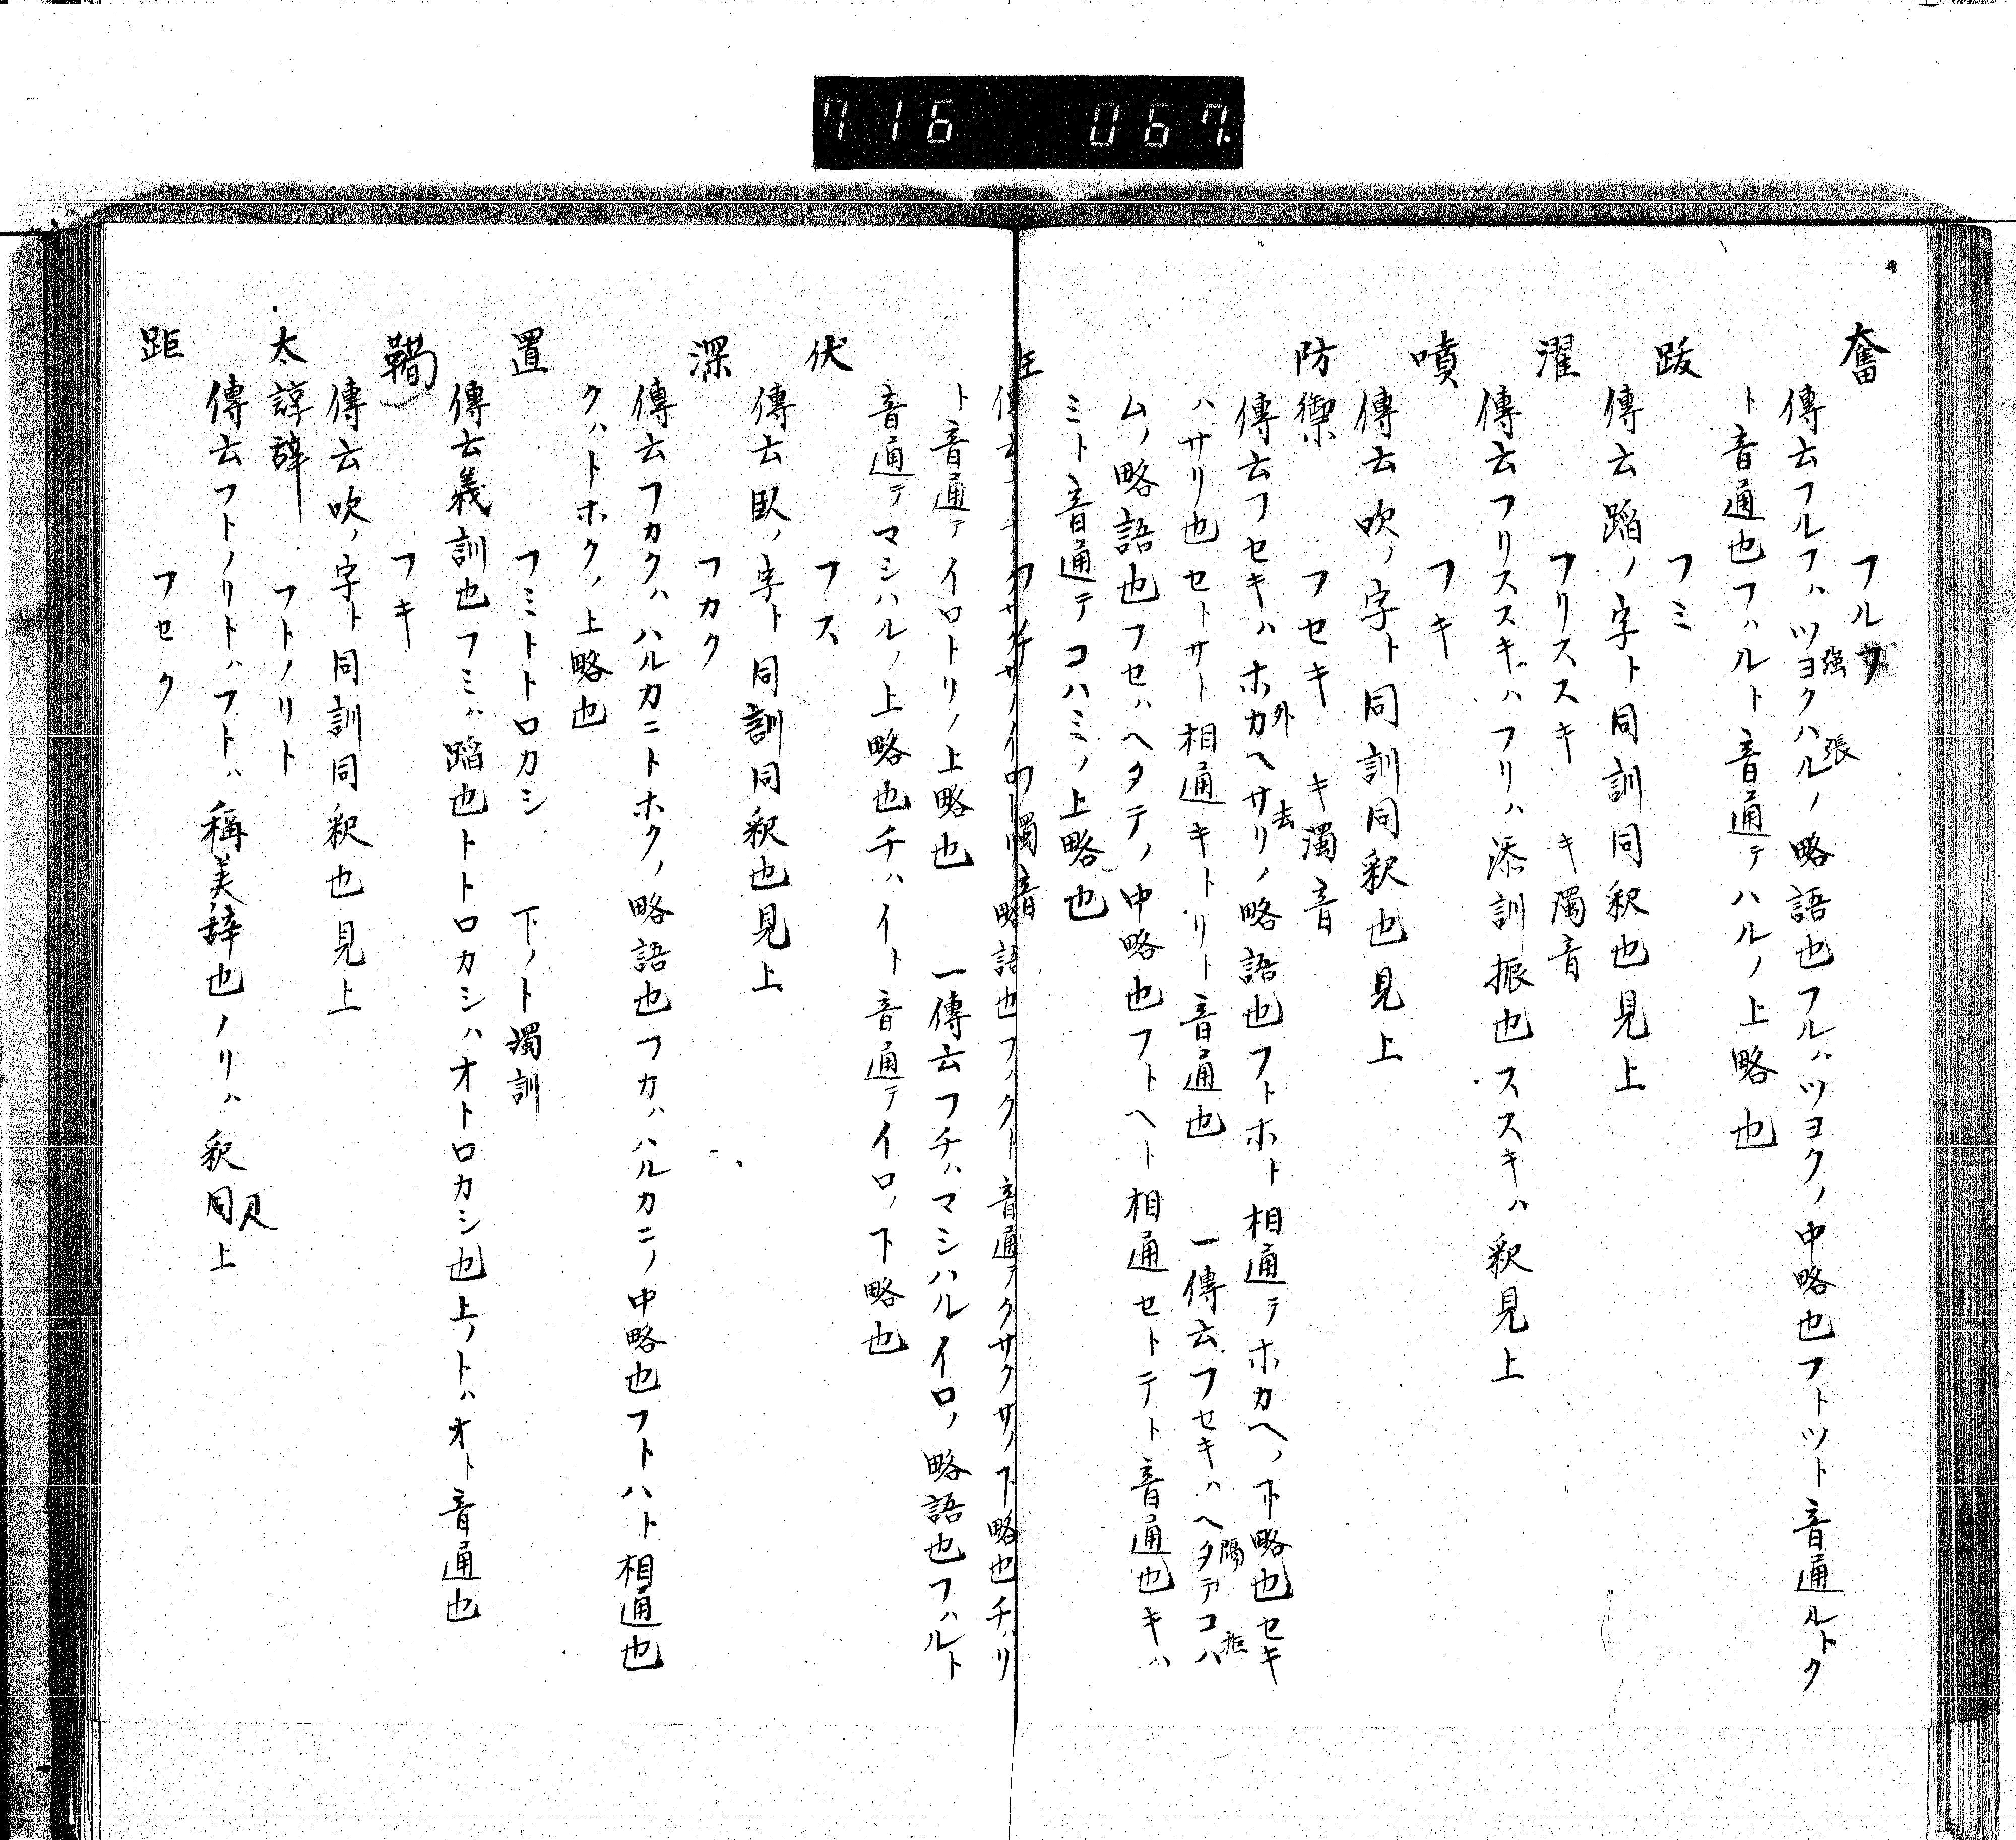 716 067
奮 フルフ
傳云フルフハツヨクハルノ略語也フルハツヨクノ中略也フトツト音通ルトク
強 張
ト音通也フハルト音通テハルノ上略也
跋 フミ
傳云蹈ノ字ト同訓同釈也見上
濯 フリススキ キ濁音
傳云フリススキハフリハ添訓振也ススキハ釈見上
噴 フキ
傳云吹ノ字ト同訓同釈也見上
防禦 フセキ キ濁音
傳云フセキハホカヘサリノ略語也フトホト相通テホカヘノ下略也セキ
外 去
ハサリ也セトサト相通キトリト音通也 一傳云フセキハヘタテコハ
隔 拒
ムノ略語也フセハヘタテノ中略也フトヘト相通セトテト音通也キハ
ミト音通テコハミノ上略也
フチ 濁音
傳云 略語也フハクト音通テクサクサノ下略也チハリ
ト音通テイロトリノ上略也 一傳云フチハマシハルイロノ略語也フハルト
音通テマシハルノ上略也チハイト音通テイロノ下略也
伏 フス
傳云臥ノ字ト同訓同釈也見上
深 フカク
傳云フカクハハルカニトホクノ略語也フカハハルカニノ中略也フトハト相通也
クハトホクノ上略也
置 フミトトロカシ 下ノト濁訓
傳云義訓也フミハ蹈也トトロカシハオトロカシ也上ノトハオト音通也
鞴 フキ
傳云吹ノ字ト同訓同釈也見上
太諄辞 フトノリト
傳云フトノリトハフトハ稱美辞也ノリハ釈同見上
距 フセク